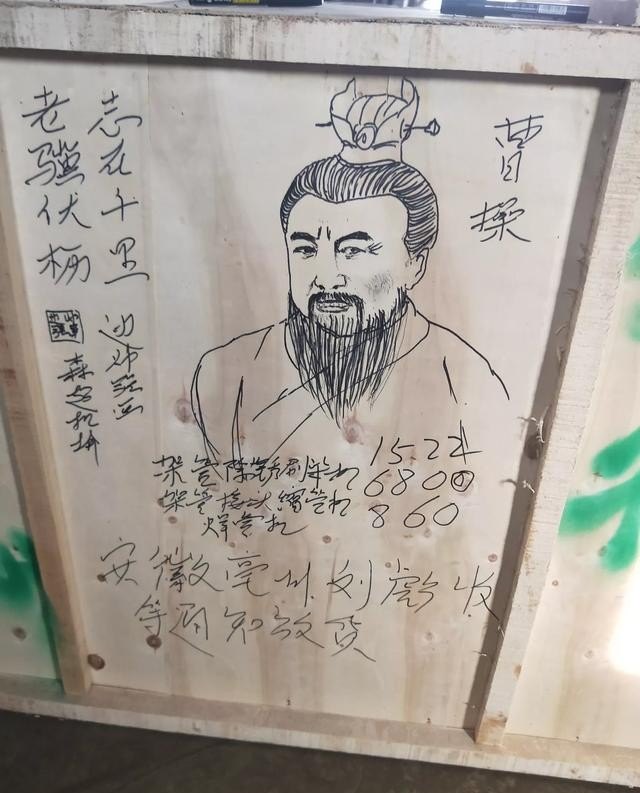 曹操
志在千里
老骥伏枥
森达机械
架管除锈刷漆机 15224
架管接头缩管机 6800
焊管机 860
安徽亳州刘彪收
等通知放货